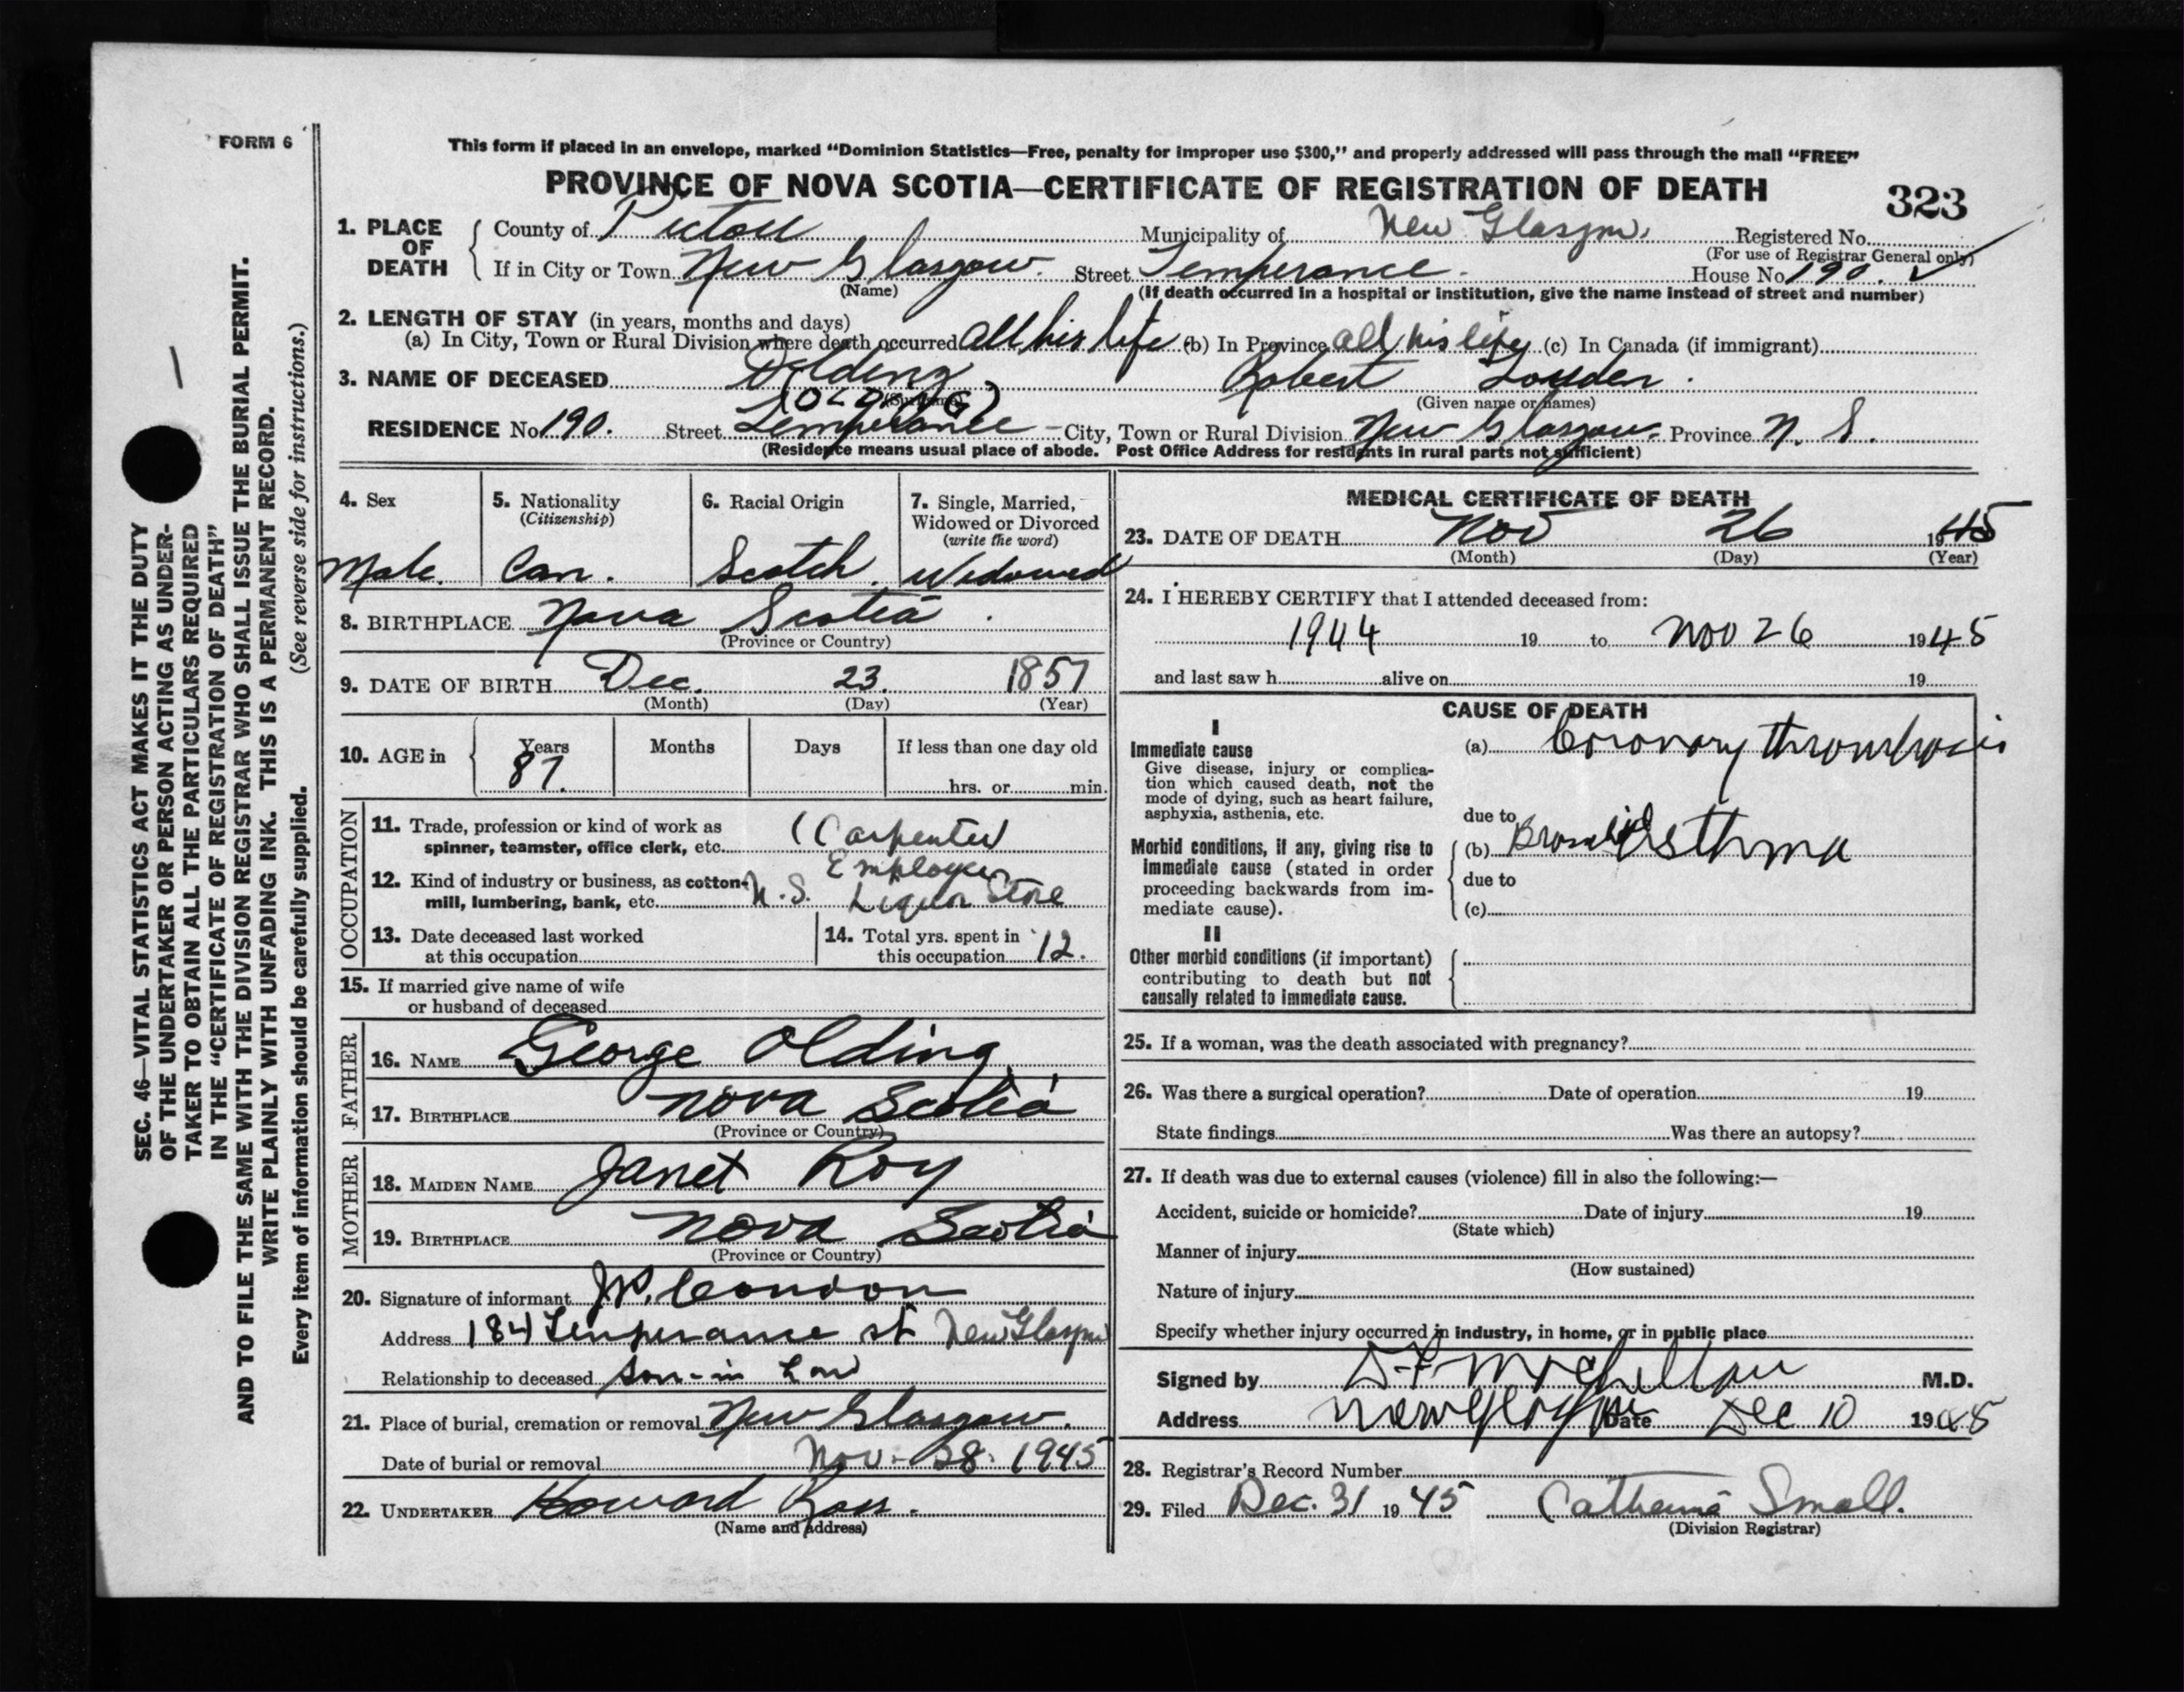 FORM 6
This form if placed in an envelope, marked “Dominion Statistics—Free, penalty for improper use $300,” and properly addressed will pass through the mail “FREE”
PROVINCE OF NOVA SCOTIA—CERTIFICATE OF REGISTRATION OF DEATH
323
1. PLACE OF DEATH
County of Pictou Municipality of New Glasgow. Registered No.
(For use of Registrar General only)
If in City or Town New Glasgow. Street Temperance. House No. 190. ✓
(Name) (If death occurred in a hospital or institution, give the name instead of street and number)
2. LENGTH OF STAY (in years, months and days)
(a) In City, Town or Rural Division where death occurred all his life (b) In Province all his life (c) In Canada (if immigrant)
3. NAME OF DECEASED Olding Robert Louden.
(OLDING)
(Surname) (Given name or names)
RESIDENCE No. 190. Street Temperance - City, Town or Rural Division New Glasgow. Province N. S.
(Residence means usual place of abode. Post Office Address for residents in rural parts not sufficient)
4. Sex
Male.
5. Nationality
(Citizenship)
Can.
6. Racial Origin
Scotch.
7. Single, Married,
Widowed or Divorced
(write the word)
Widowed
8. BIRTHPLACE Nova Scotia.
(Province or Country)
9. DATE OF BIRTH Dec. 23. 1857
(Month) (Day) (Year)
10. AGE in
Years Months Days If less than one day old
87.
hrs. or min.
OCCUPATION
11. Trade, profession or kind of work as
spinner, teamster, office clerk, etc. (Carpenter
Employee
12. Kind of industry or business, as cotton-
mill, lumbering, bank, etc. N.S. Liquor Store
13. Date deceased last worked
at this occupation
14. Total yrs. spent in
this occupation 12.
15. If married give name of wife
or husband of deceased
FATHER
16. NAME George Olding
17. BIRTHPLACE Nova Scotia
(Province or Country)
MOTHER
18. MAIDEN NAME Janet Roy
19. BIRTHPLACE Nova Scotia
(Province or Country)
20. Signature of informant J.P. Condon
Address 184 Temperance st New Glasgow
Relationship to deceased Son-in Law
21. Place of burial, cremation or removal New Glasgow.
Date of burial or removal Nov. 28. 1945
22. UNDERTAKER Howard Ross.
(Name and address)
MEDICAL CERTIFICATE OF DEATH
23. DATE OF DEATH Nov 26 1945
(Month) (Day) (Year)
24. I HEREBY CERTIFY that I attended deceased from:
1944 19 to Nov 26 1945
and last saw h alive on 19
CAUSE OF DEATH
I
Immediate cause
Give disease, injury or complica-
tion which caused death, not the
mode of dying, such as heart failure,
asphyxia, asthenia, etc.
(a) Coronary thrombosis
due to
Morbid conditions, if any, giving rise to
immediate cause (stated in order
proceeding backwards from im-
mediate cause).
(b) Asthma
due to
(c)
II
Other morbid conditions (if important)
contributing to death but not
causally related to immediate cause.
25. If a woman, was the death associated with pregnancy?
26. Was there a surgical operation? Date of operation 19
State findings Was there an autopsy?
27. If death was due to external causes (violence) fill in also the following:—
Accident, suicide or homicide? Date of injury 19
(State which)
Manner of injury
(How sustained)
Nature of injury
Specify whether injury occurred in industry, in home, or in public place
Signed by M.D.
Address New Glasgow Date Dec 10 1945
28. Registrar's Record Number
29. Filed Dec. 31 1945 Catherine Small.
(Division Registrar)
SEC. 46—VITAL STATISTICS ACT MAKES IT THE DUTY
OF THE UNDERTAKER OR PERSON ACTING AS UNDER-
TAKER TO OBTAIN ALL THE PARTICULARS REQUIRED
IN THE “CERTIFICATE OF REGISTRATION OF DEATH”
AND TO FILE THE SAME WITH THE DIVISION REGISTRAR WHO SHALL ISSUE THE BURIAL PERMIT.
WRITE PLAINLY WITH UNFADING INK. THIS IS A PERMANENT RECORD.
Every item of information should be carefully supplied. (See reverse side for instructions.)